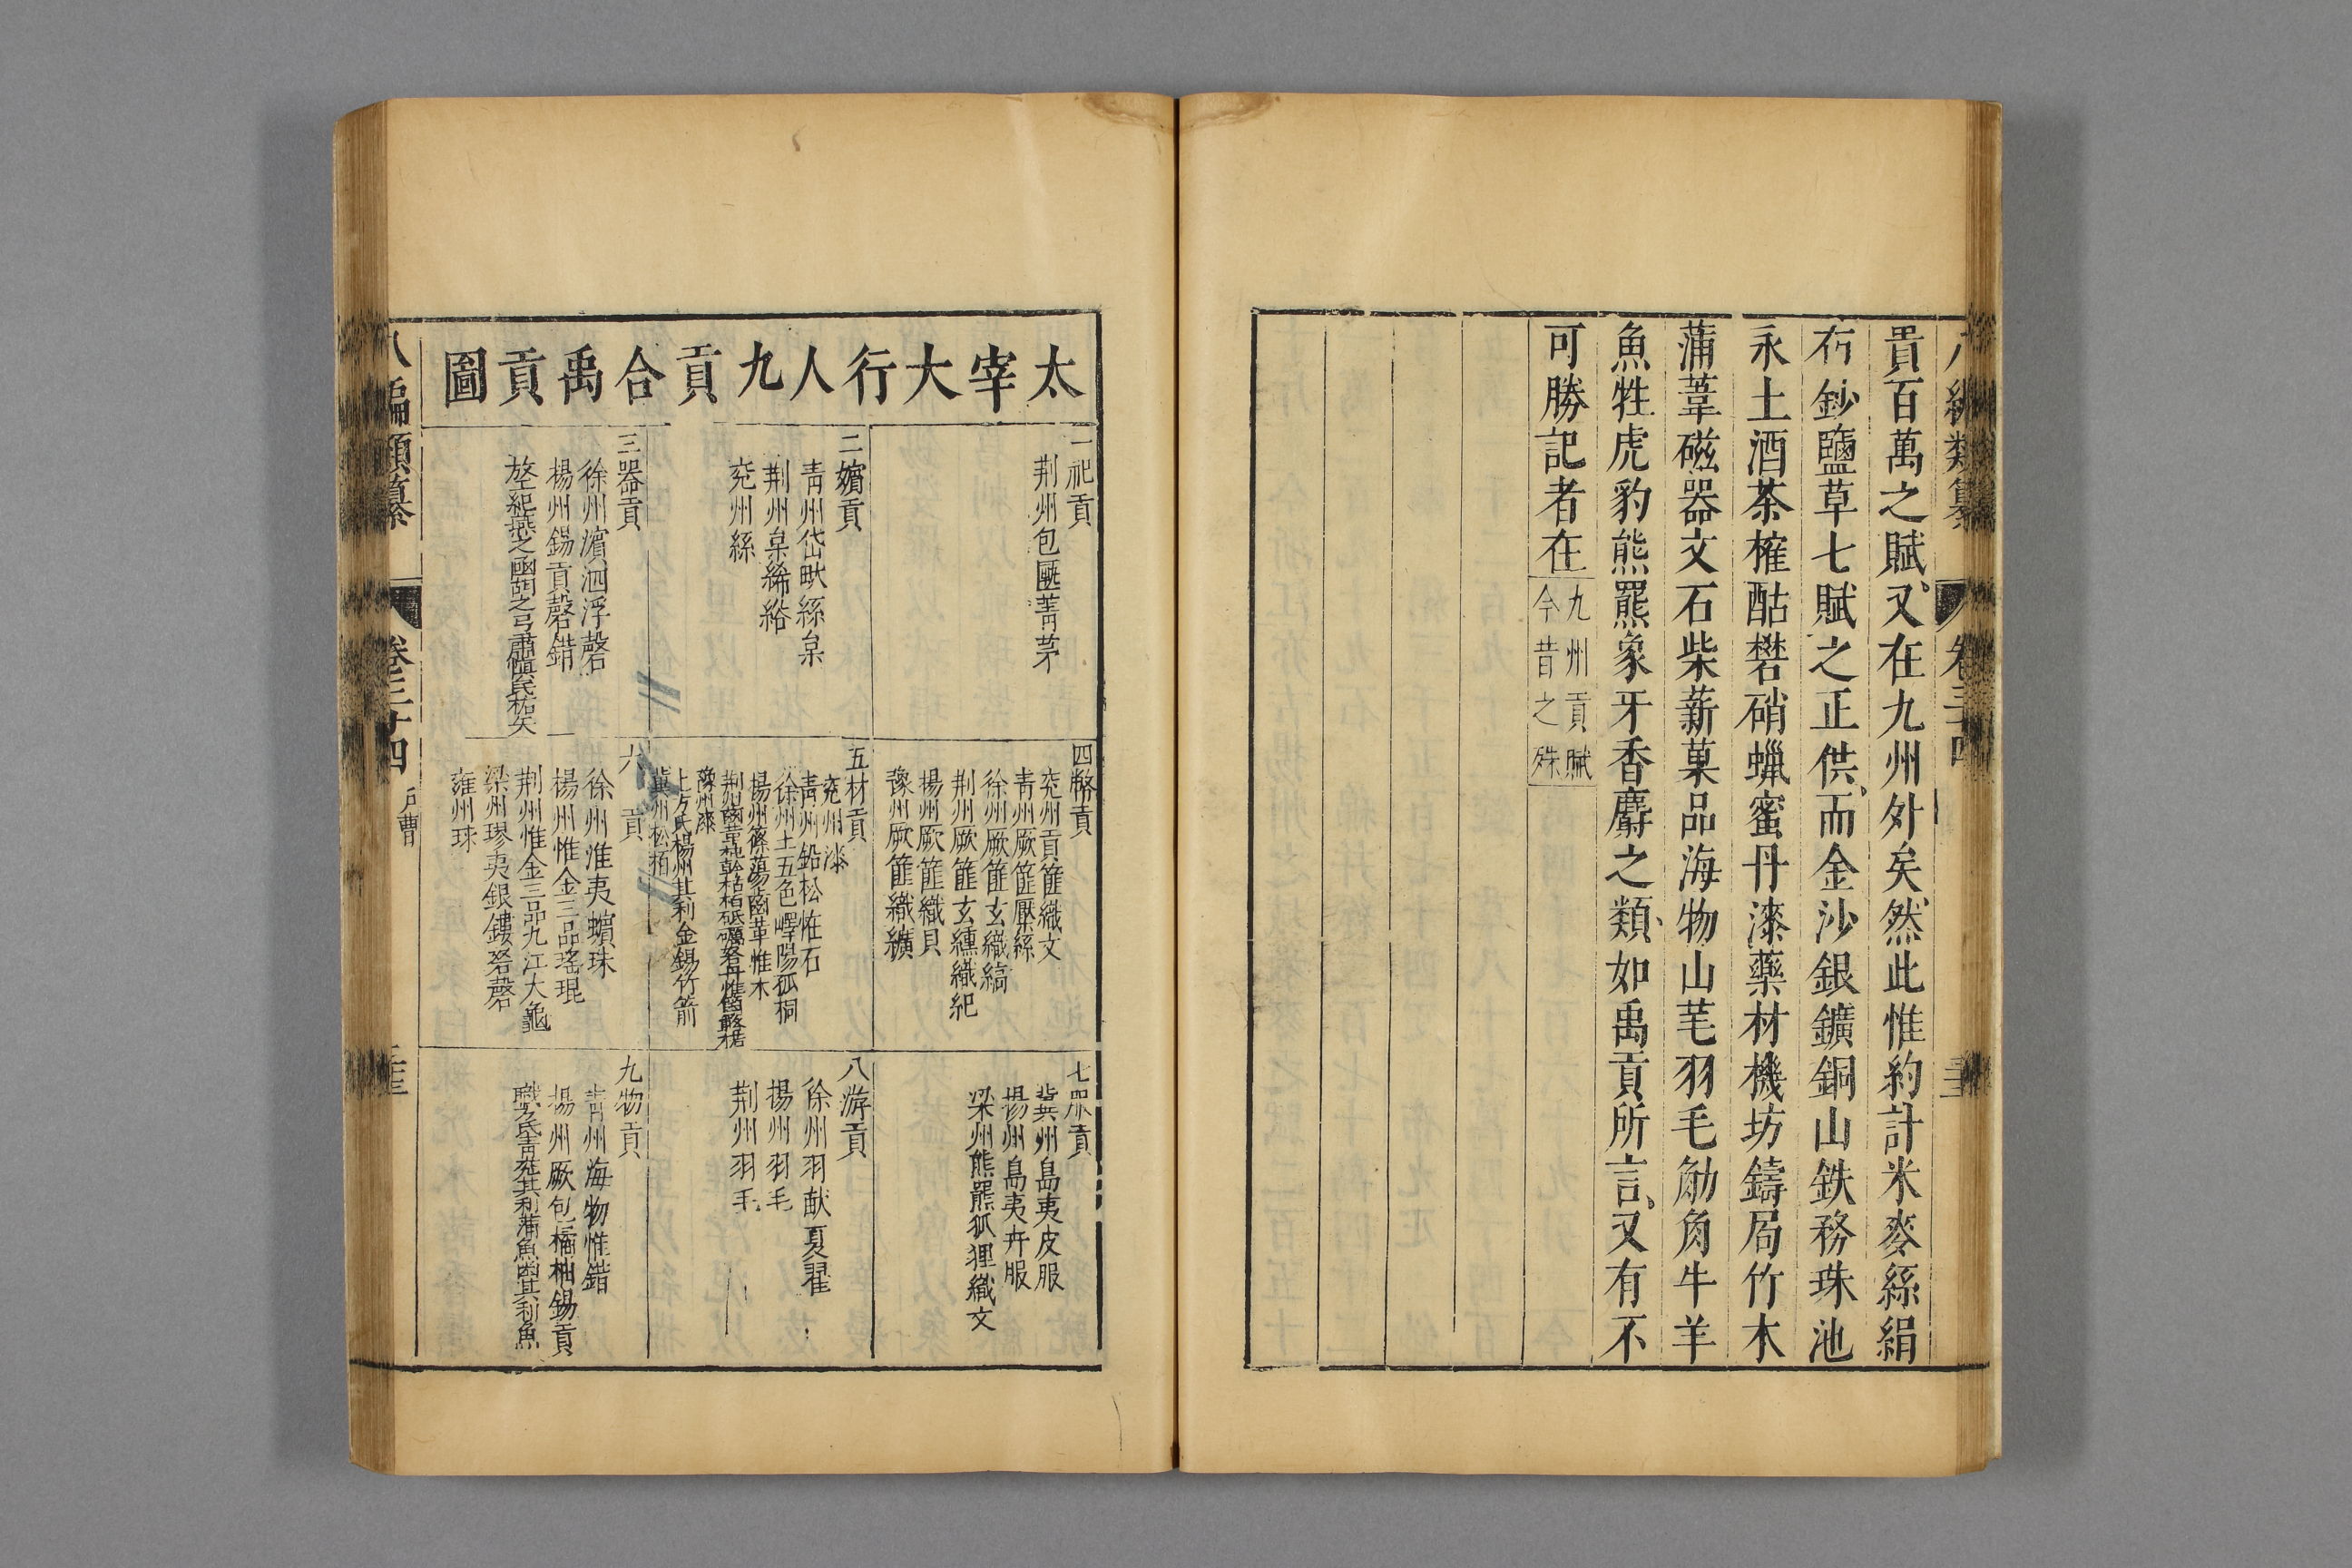 八編類纂　卷三十四
貴百萬之賦又在九州外矣然此惟約計米麥絲絹
布鈔鹽草七賦之正供而金沙銀鑛銅山鉄務珠池
永土酒茶榷酤礬硝蠟蜜丹漆藥材機坊鑄局竹木
蒲葦磁器文石柴薪菓品海物山芼羽毛觔角牛羊
魚牲虎豹熊羆象牙香麝之類如禹貢所言又有不
可勝記者在
九州貢賦
今昔之殊
太宰大行人九貢合禹貢圖
一祀貢
荆州包匭菁茅
二嬪貢
青州岱畎絲枲
荆州枲絺綌
兖州絲
三器貢
徐州濱泗浮磬
楊州錫貢磬錯
四幣貢
兖州貢篚織文
青州厥篚壓絲
徐州厥篚玄織縞
荆州厥篚玄纁織紀
揚州厥篚織貝
豫州厥篚織纊
五材貢
兖州漆
青州鉛松怪石
徐州土五色嶧陽孤桐
揚州篠蕩齒革惟木
豫州漆
冀州松栢
六　貢
徐州淮夷蠙珠
楊州惟金三品瑤琨
荆州惟金三品九江大龜
梁州璆夷銀鏤砮磬
雍州珠
七服貢
冀州島夷皮服
揚州島夷卉服
梁州熊羆狐狸織文
八斿貢
徐州羽畎夏翟
揚州羽毛
荆州羽毛
九物貢
青州海物惟錯
揚州厥包橘柚錫貢
職方氏青兖其利蒲魚幽其利魚
八編類纂　卷三十四　戶曹